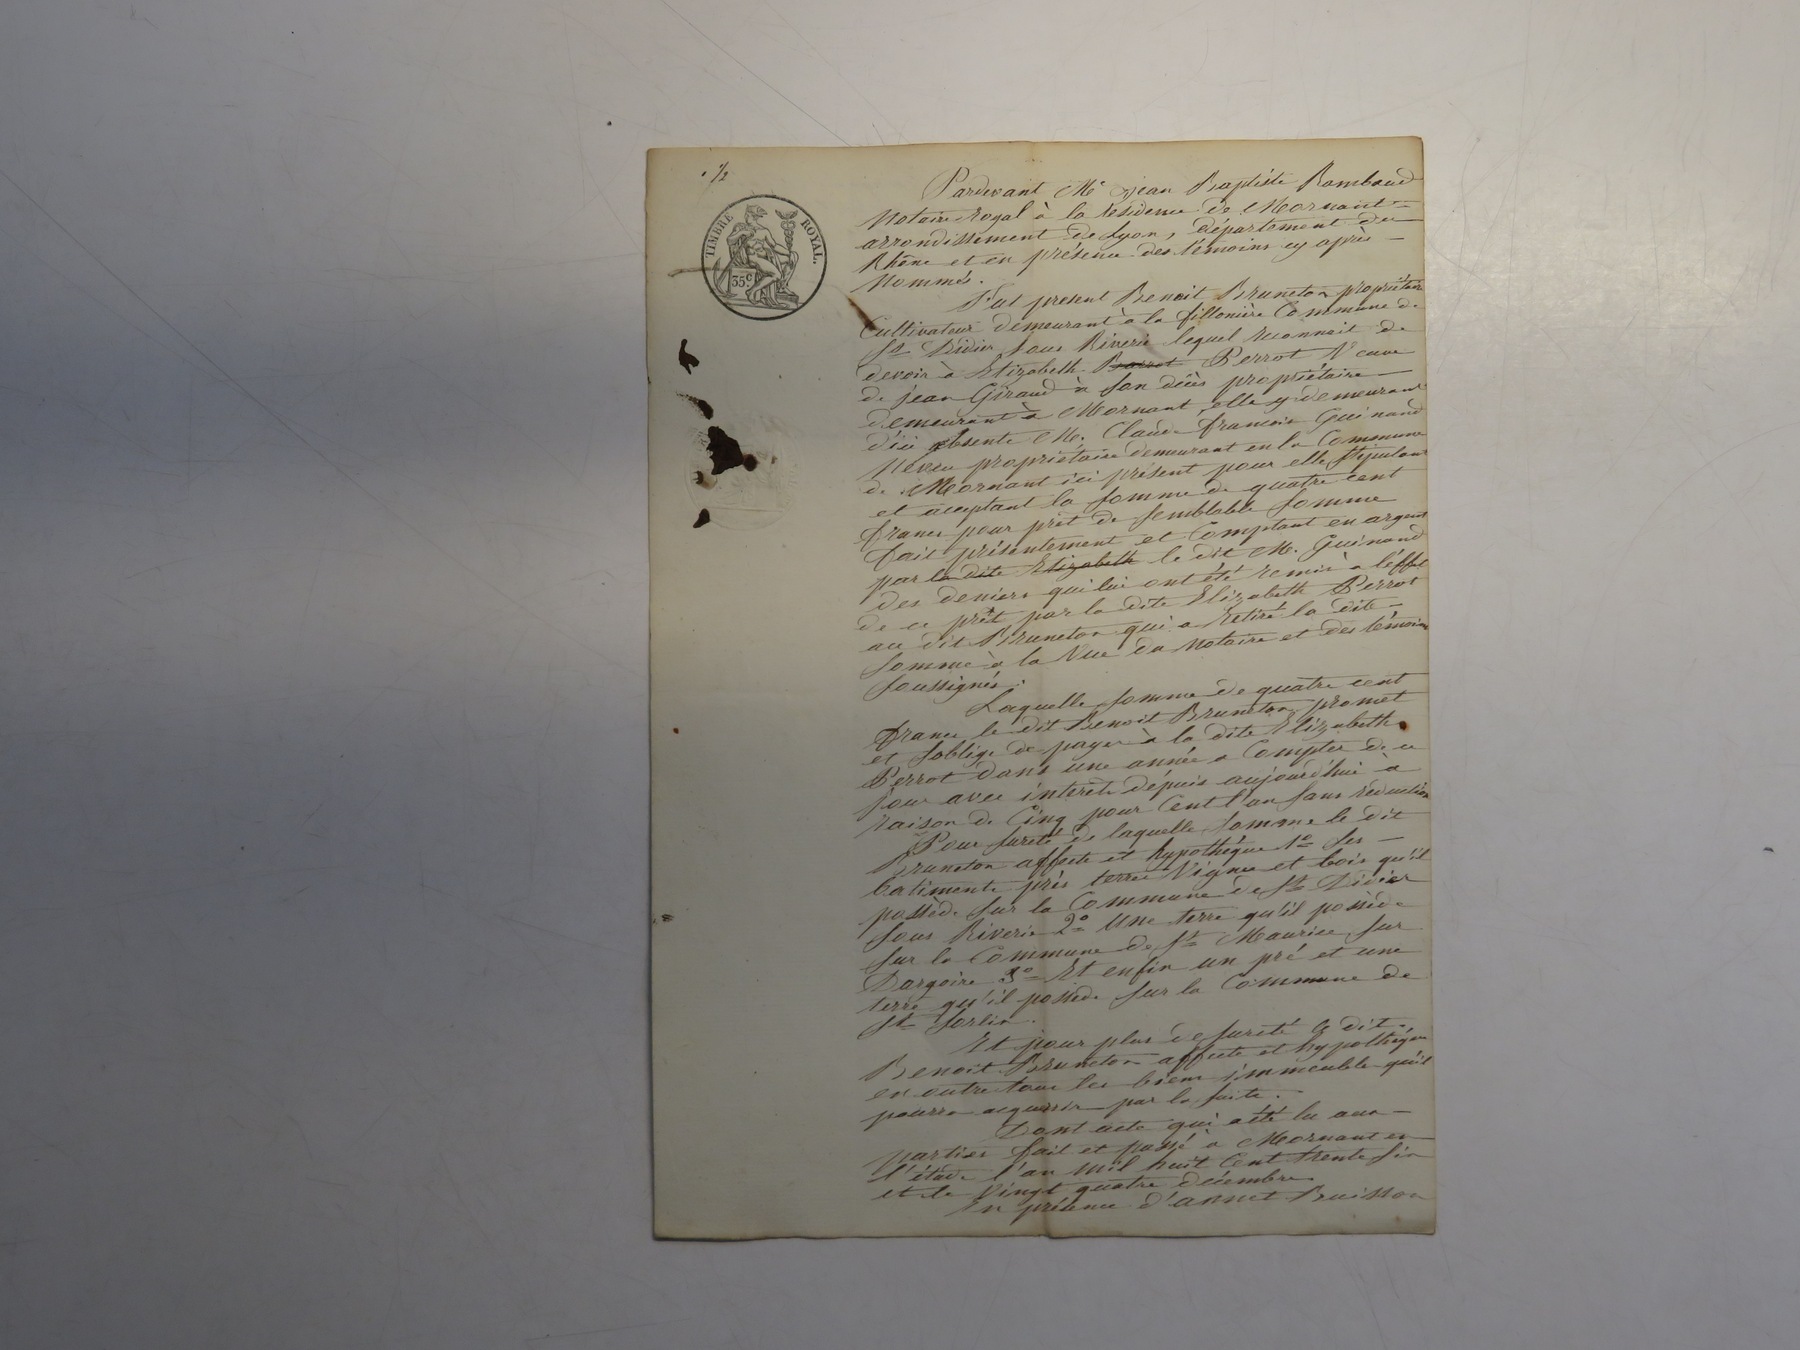 1/2
TIMBRE ROYAL.
35 c
Pardevant Me jean Baptiste Rambaud
Notaire royal à la résidence de Mornant
arrondissement de Lyon, département du
Rhône et en présence des témoins cy après
Nommés.
Fut present Benoit Bruneton propriétaire
Cultivateur demeurant à la fillonière Commune de
St Didier sous Riverie lequel reconnait de
devoir à Elizabeth Perrot Veuve
de jean Giraud à son décès propriétaire
demeurant à Mornant, elle y demeurant
d'ici absente M. Claude francois Guinand
Neveu propriétaire demeurant en la Commune
de Mornant ici présent pour elle stipulant
et acceptant la somme de quatre cent
francs pour prêt de semblable somme
fait présentement et Comptant en argent
par la dite Elizabeth le dit M. Guinand
des deniers qui lui ont été remis a l'effet
de ce prêt par la dite Elizabeth Perrot
au dit Bruneton qui a retiré la dite
somme à la Vue du Notaire et des témoins
soussignés.
Laquelle somme de quatre cent
francs le dit Benoit Bruneton promet
et soblige de payer à la dite Elizabeth
Perrot dans une année a Compter de ce
jour avec intérêts dépuis aujourd'hui à
raison de Cinq pour Cent l'an sans réduction
Pour sureté de laquelle somme le dit
Bruneton affecte et hypothèque 1o ses
batiments prés terres Vignes et bois qu'il
possède sur la Commune de St Didier
sous Riverie 2o Une terre qu'il possède
sur la Commune de St Maurice sur
Dargoire 3o Et enfin un pré et une
terre qu'il possède sur la Commune de
St Sorlin.
Et pour plus de sureté le dit
Benoit Bruneton affecte et hypothéque
en outre tous les biens immeuble qu'il
pourra acquerrir par la suite.
Dont acte qui a été lu aux
parties fait et passé à Mornant en
l'étude l'an mil huit Cent trente six
et le Vingt quatre décembre
En présence d'annet Buisson